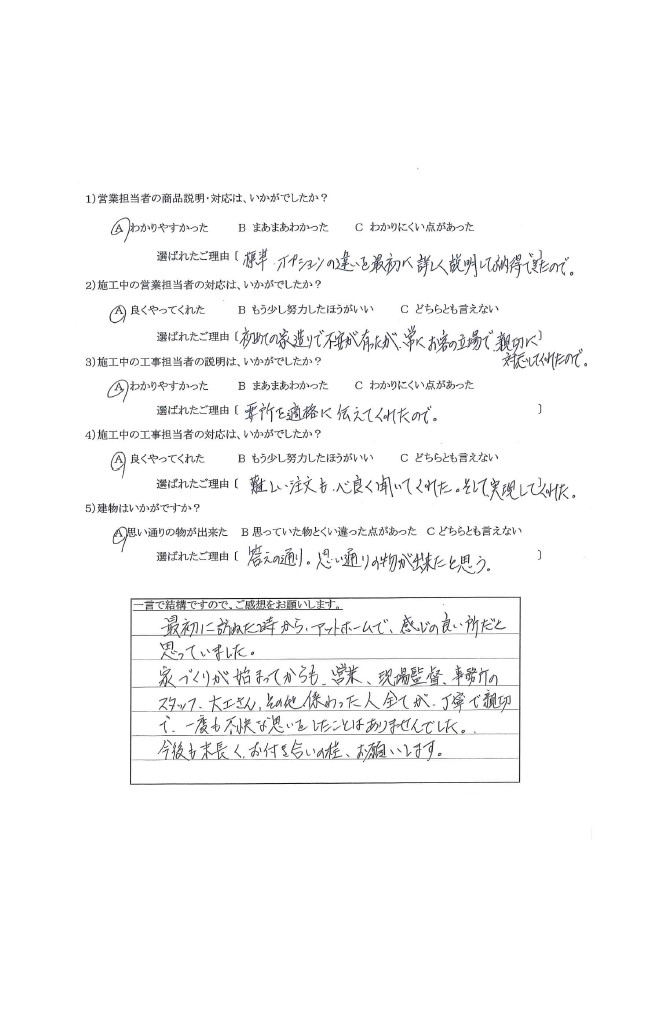 1)営業担当者の商品説明・対応は、いかがでしたか？
A わかりやすかった B まあまあわかった C わかりにくい点があった
選ばれたご理由〔 標準、オプションの違いを最初に詳しく説明して納得できたので。〕
2)施工中の営業担当者の対応は、いかがでしたか？
A 良くやってくれた B もう少し努力したほうがいい C どちらとも言えない
選ばれたご理由〔 初めての家造りで不安が有ったが、常にお客の立場で親切に
対応してくれたので。
3)施工中の工事担当者の説明は、いかがでしたか？
A わかりやすかった B まあまあわかった C わかりにくい点があった
選ばれたご理由〔 要所を適格に伝えてくれたので。 〕
4)施工中の工事担当者の対応は、いかがでしたか？
A 良くやってくれた B もう少し努力したほうがいい C どちらとも言えない
選ばれたご理由〔 難しい注文も、心良く聞いてくれた。そして実現してくれた。
5)建物はいかがですか？
A 思い通りの物が出来た B 思っていた物とくい違った点があった C どちらとも言えない
選ばれたご理由〔 答えの通り。思い通りの物が出来たと思う。 〕
一言で結構ですので、ご感想をお願いします。
最初に訪ねた時から、アットホームで、感じの良い所だと
思っていました。
家づくりが始まってからも、営業、現場監督、事務所の
スタッフ、大工さん、その他係わった人全てが、丁寧で親切
で、一度も不快な思いをしたことはありませんでした。
今後も末長く、お付き合いの程、お願いします。